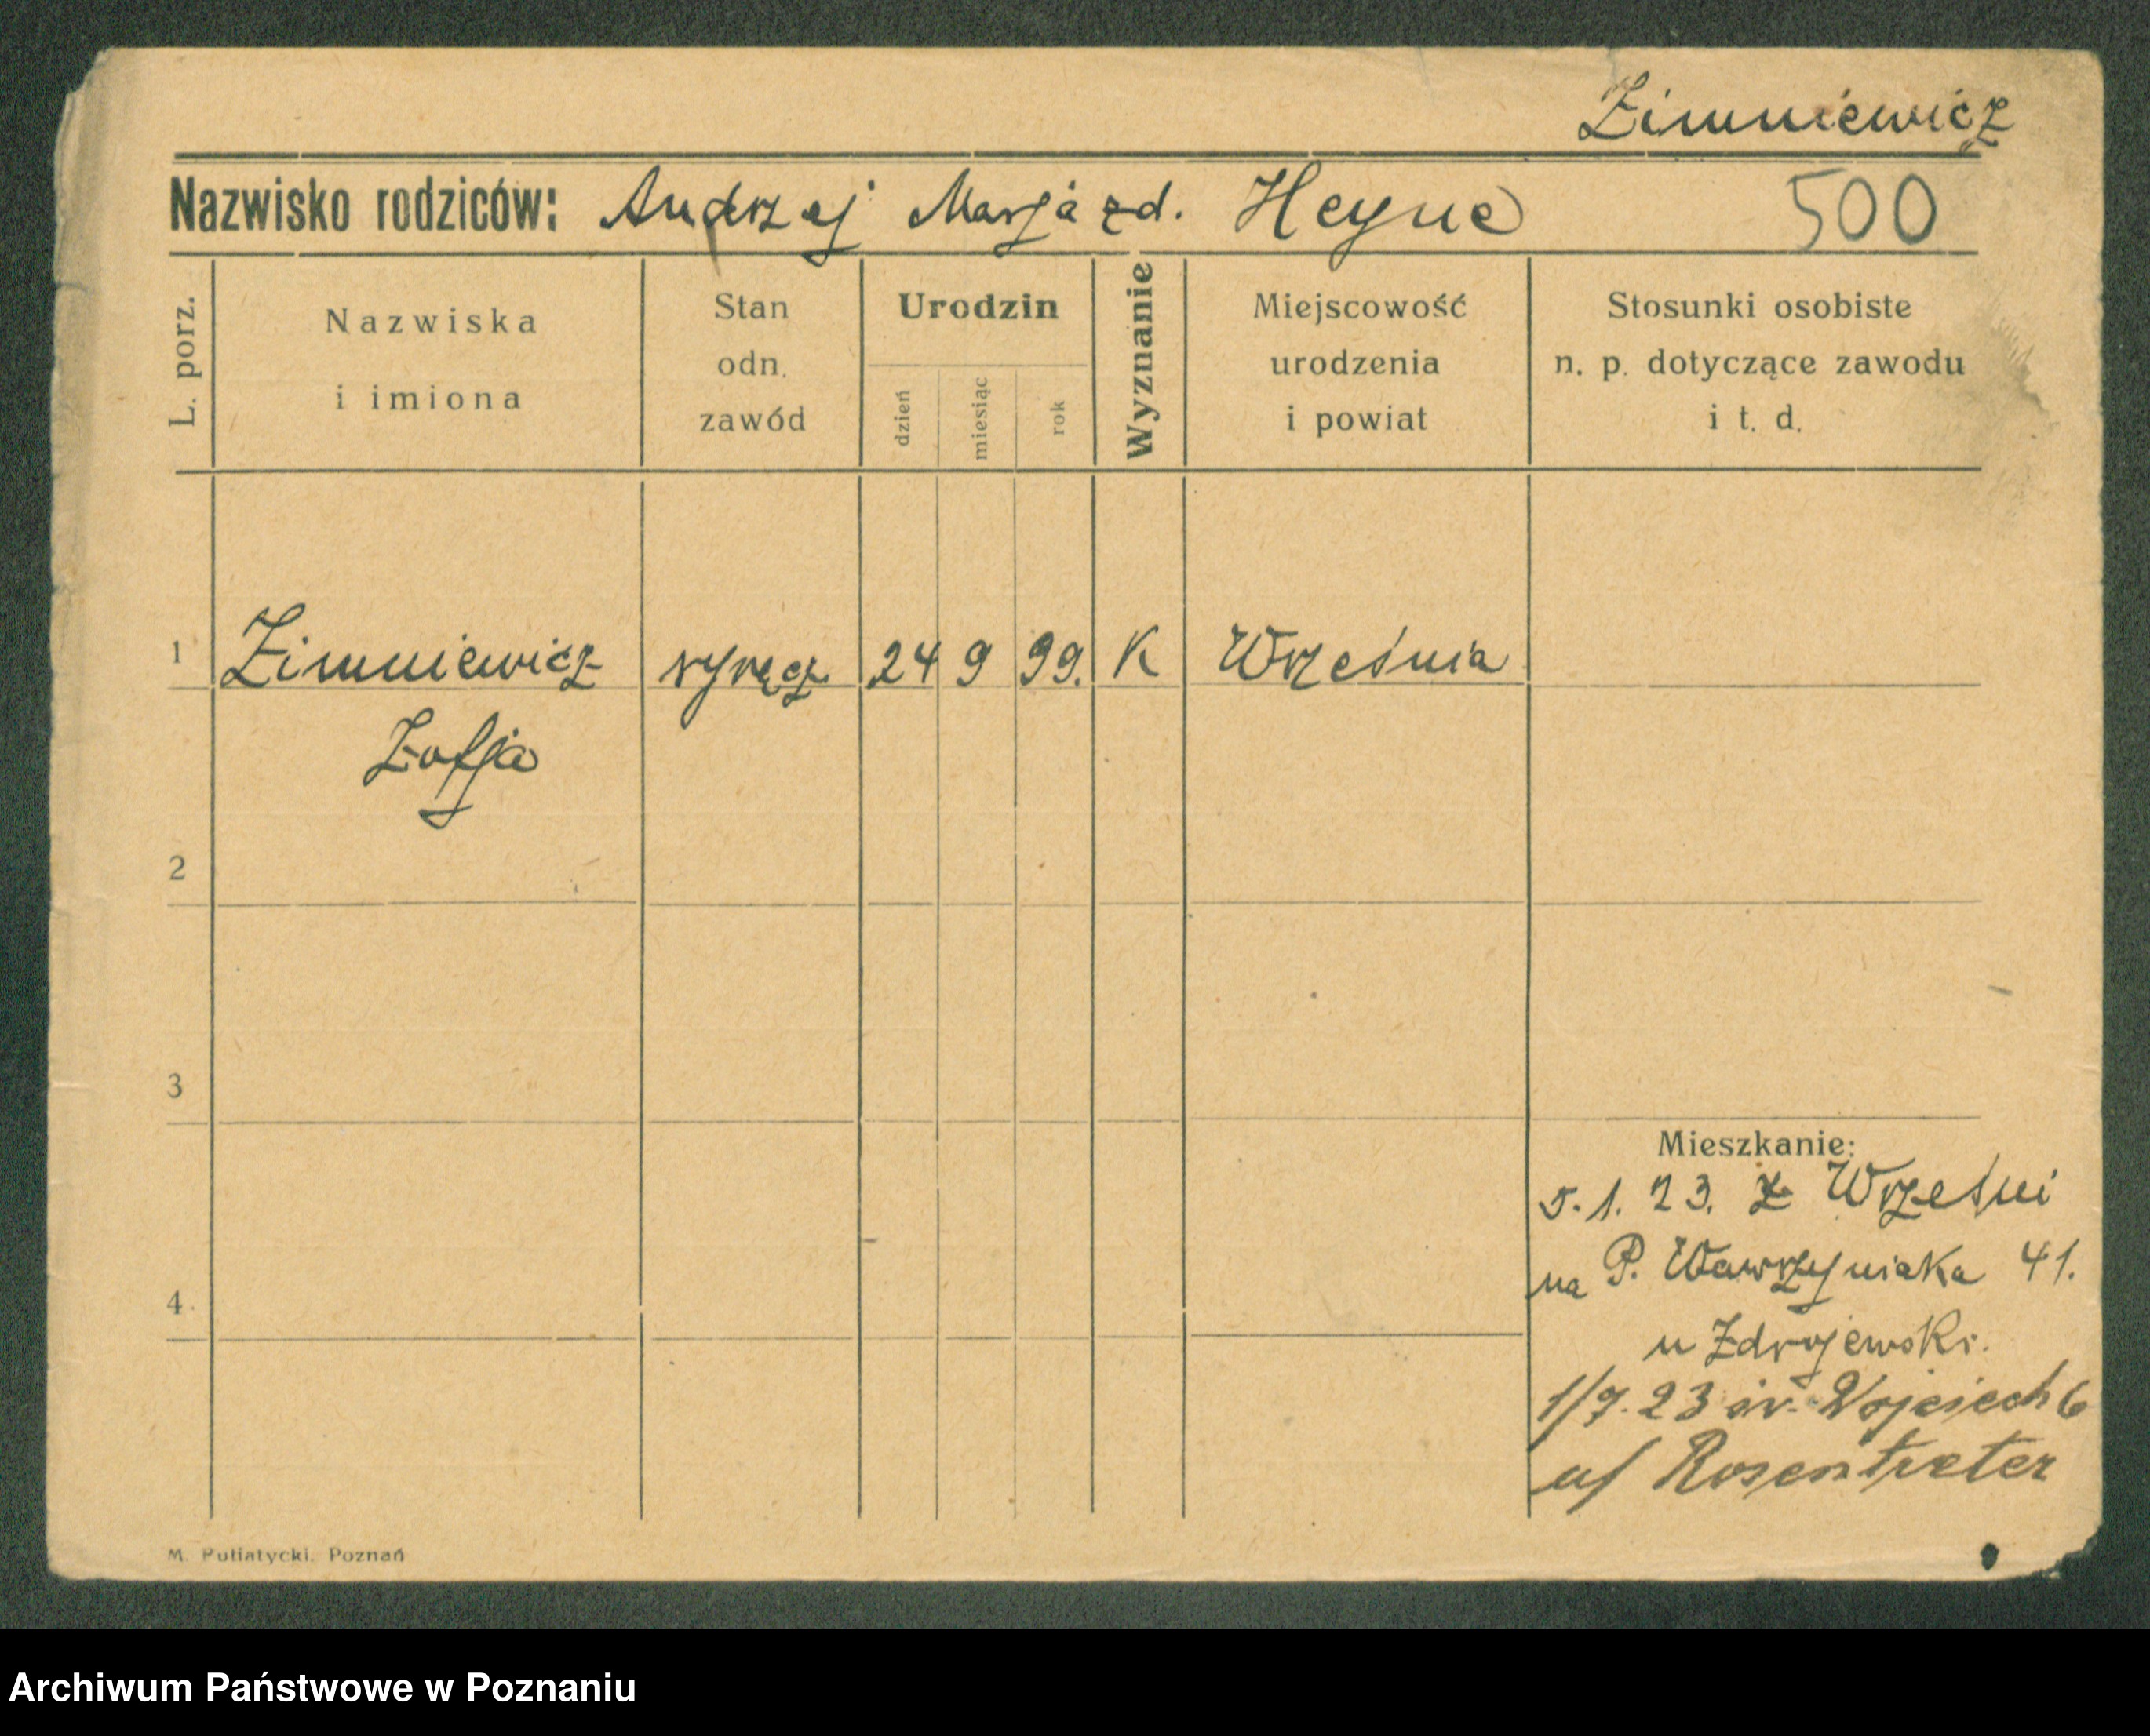 Zimniewicz
Nazwisko rodziców: Andrzej Marja zd. Heyne 500
L. porz.
Nazwiska
i imiona
Stan
odn.
zawód
Urodzin
dzień
miesiąc
rok
Wyznanie
Miejscowość
urodzenia
i powiat
Stosunki osobiste
n. p. dotyczące zawodu
i t. d.
1 Zimniewicz 24 9 99. K Września
Zofja
2
3
Mieszkanie:
5. 1. 23. z Wrześni
na P. Wawrzyniaka 41.
4.
u Zdrojewski.
1/7. 23 św. Wojciech 6
u/ Rosentreter
M. Putiatycki. Poznań
Archiwum Państwowe w Poznaniu